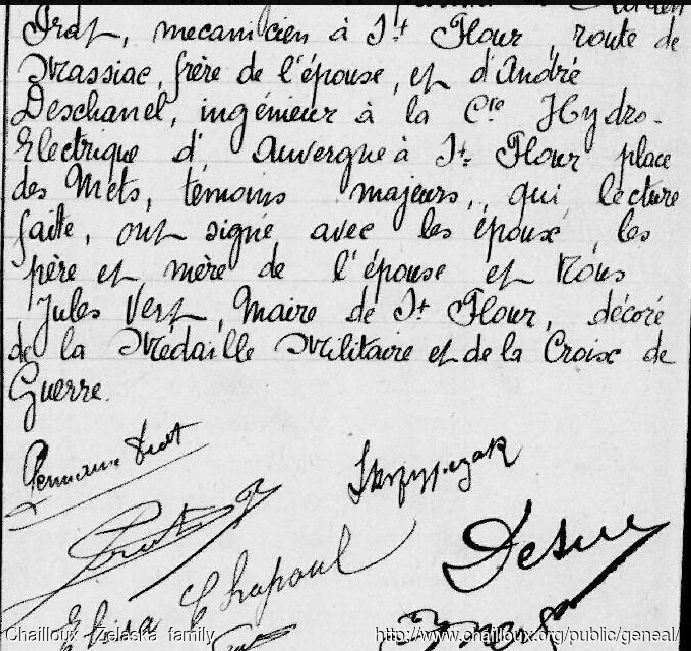 Prat, mecanicien à St Flour, route de
Massiac, frère de l'épouse, et d'André
Deschanel, ingénieur à la Cie Hydro-
Electrique d'Auvergne à St Flour place
des Mets, témoins majeurs, qui, lecture
faite, ont signé avec les époux, les
père et mère de l'épouse et Nous
Jules Vert, Maire de St Flour, décoré
de la Médaille Militaire et de la Croix de
Guerre.
Germaine Prat
Skrzypczak
Prat
Elisa Chapoul
Chailloux - Zelaska family
http://www.chailloux.org/public/geneal/